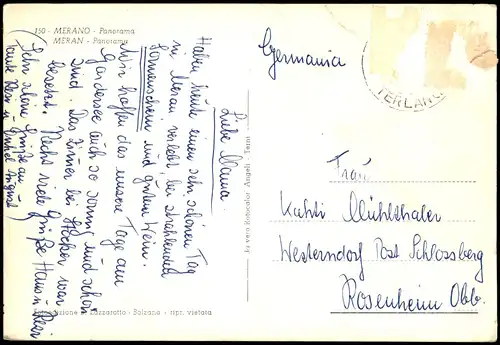 150 - MERANO - Panorama
MERAN - Panorama
Liebe Mama.
Haben heute einen sehr schönen Tag
in Meran verlebt, bei strahlendem
Sonnenschein und gutem Wein.
Wir hoffen das unsere Tage am
Gardersee auch so sonnig und schön
sind. Das Zimmer bei Höcker war
besetzt. Recht viele Grüße Hans u. Resi
(Sehr schöne Grüße an
Tante Resi u. Onkel August)
Vera Fotocolor Angeli - Terni
Edizione Lazzarotto - Bolzano - ripr. vietata
Germania
TERLANO
Frau
Kathi Mühlthaler
Westerndorf Post Schlossberg
Rosenheim Obb.